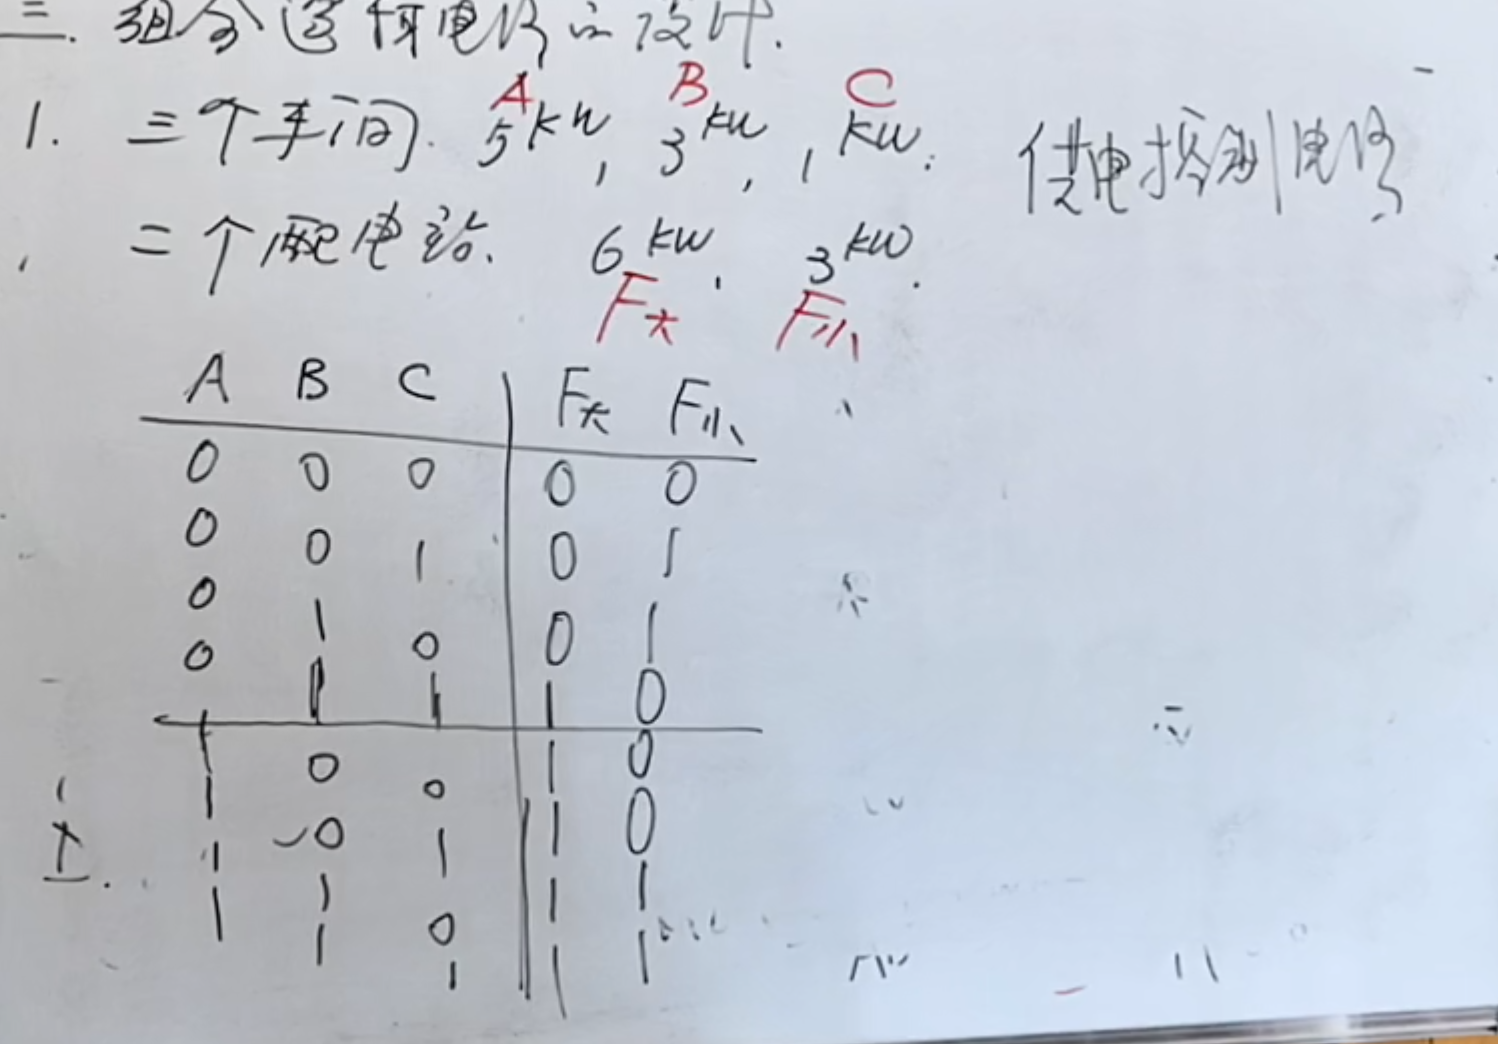 二. 组合逻辑电路的设计.
A B C
1. 三个车间. 5kW, 3kW, 1kW. 供电控制电路.
二个配电站. 6kW, 3kW.
F大 F小
A B C F大 F小
0 0 0 0 0
0 0 1 0 1
0 1 0 0 1
0 1 1 1 0
1 0 0 1 0
1 0 1 1 0
1 1 0 1 1
1 1 1 1 1